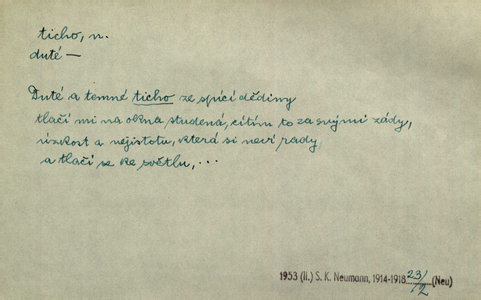 ticho, n.
duté —
Duté a temné ticho ze spící dědiny
tlačí mi na okna studená, cítím to za svými zády,
úzkost a nejistotu, která si neví rady
a tlačí se ke světlu, ...
1953 (II.) S. K. Neumann, 1914-1918 23/2 (Neu)